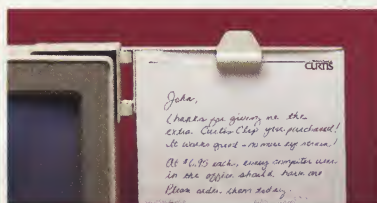 CURTIS
John,
Thanks for giving me the
extra Curtis Clip you purchased!
It works great - no more eye strain!
At $6.95 each, every computer user
in the office should have one
Please order them today.